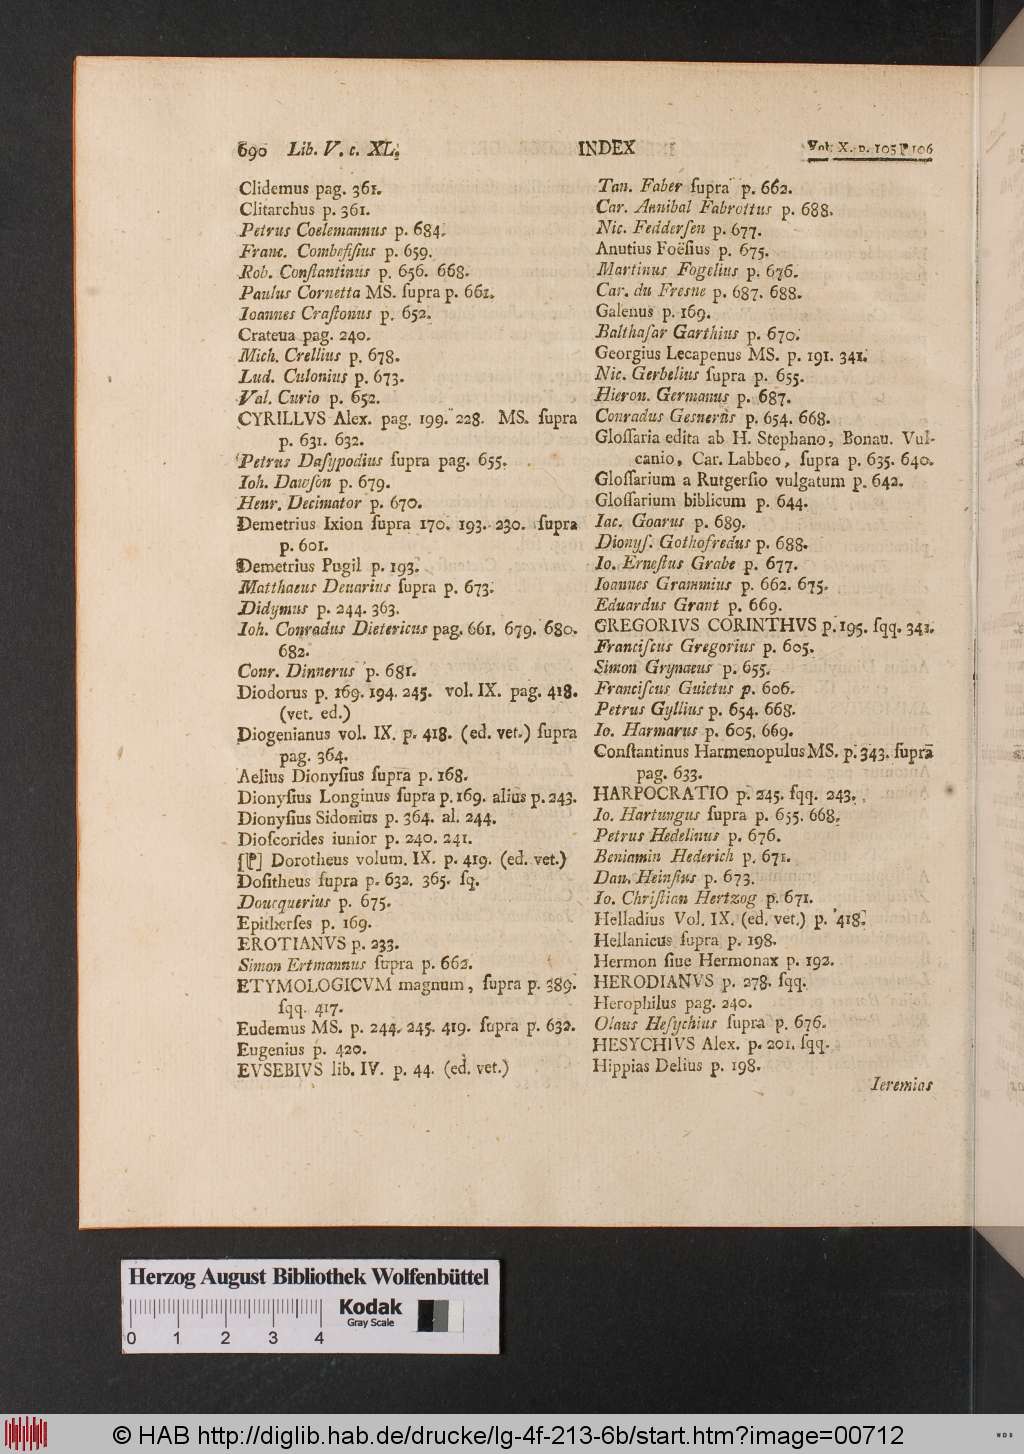 690 Lib. V. c. XL. INDEX Vol. X. p. 105 P 106
Clidemus pag. 361.
Clitarchus p. 361.
Petrus Coelemannus p. 684.
Franc. Combefiſius p. 659.
Rob. Conſtantinus p. 656. 668.
Paulus Cornetta MS. ſupra p. 661.
Ioannes Craſtonus p. 652.
Crateua pag. 240.
Mich. Crellius p. 678.
Lud. Culonius p. 673.
Val. Curio p. 652.
CYRILLVS Alex. pag. 199. 228. MS. ſupra
p. 631. 632.
Petrus Daſypodius ſupra pag. 655.
Ioh. Dawſon p. 679.
Henr. Decimator p. 670.
Demetrius Ixion ſupra 170. 193. 230. ſupra
p. 601.
Demetrius Pugil p. 193.
Matthaeus Deuarius ſupra p. 673.
Didymus p. 244. 363.
Ioh. Conradus Dietericus pag. 661. 679. 680.
682.
Conr. Dinnerus p. 681.
Diodorus p. 169. 194. 245. vol. IX. pag. 418.
(vet. ed.)
Diogenianus vol. IX. p. 418. (ed. vet.) ſupra
pag. 364.
Aelius Dionyſius ſupra p. 168.
Dionyſius Longinus ſupra p. 169. alius p. 243.
Dionyſius Sidonius p. 364. al. 244.
Dioſcorides iunior p. 240. 241.
[P] Dorotheus volum. IX. p. 419. (ed. vet.)
Doſitheus ſupra p. 632. 365. ſq.
Doucquerius p. 675.
Epitherſes p. 169.
EROTIANVS p. 233.
Simon Ertmannus ſupra p. 662.
ETYMOLOGICVM magnum, ſupra p. 389.
ſqq. 417.
Eudemus MS. p. 244. 245. 419. ſupra p. 632.
Eugenius p. 420.
EVSEBIVS lib. IV. p. 44. (ed. vet.)
Tan. Faber ſupra p. 662.
Car. Annibal Fabrottus p. 688.
Nic. Fedderſen p. 677.
Anutius Foëſius p. 675.
Martinus Fogelius p. 676.
Car. du Fresne p. 687. 688.
Galenus p. 169.
Balthaſar Garthius p. 670.
Georgius Lecapenus MS. p. 191. 341.
Nic. Gerbelius ſupra p. 655.
Hieron. Germanus p. 687.
Conradus Gesnerus p. 654. 668.
Gloſſaria edita ab H. Stephano, Bonau. Vul-
canio, Car. Labbeo, ſupra p. 635. 640.
Gloſſarium a Rutgerſio vulgatum p. 642.
Gloſſarium biblicum p. 644.
Iac. Goarus p. 689.
Dionyſ. Gothofredus p. 688.
Io. Erneſtus Grabe p. 677.
Ioannes Grammius p. 662. 675.
Eduardus Grant p. 669.
GREGORIVS CORINTHVS p. 195. ſqq. 341.
Franciſcus Gregorius p. 605.
Simon Grynaeus p. 655.
Franciſcus Guietus p. 606.
Petrus Gyllius p. 654. 668.
Io. Harmarus p. 605. 669.
Conſtantinus Harmenopulus MS. p. 343. ſupra
pag. 633.
HARPOCRATIO p. 245. ſqq. 243.
Io. Hartungus ſupra p. 655. 668.
Petrus Hedelinus p. 676.
Beniamin Hederich p. 671.
Dan. Heinſius p. 673.
Io. Chriſtian Hertzog p. 671.
Helladius Vol. IX. (ed. vet.) p. 418.
Hellanicus ſupra p. 198.
Hermon ſiue Hermonax p. 192.
HERODIANVS p. 278. ſqq.
Herophilus pag. 240.
Olaus Heſychius ſupra p. 676.
HESYCHIVS Alex. p. 201. ſqq.
Hippias Delius p. 198.
Ieremias
Herzog August Bibliothek Wolfenbüttel
Kodak
Gray Scale
0 1 2 3 4
© HAB http://diglib.hab.de/drucke/lg-4f-213-6b/start.htm?image=00712